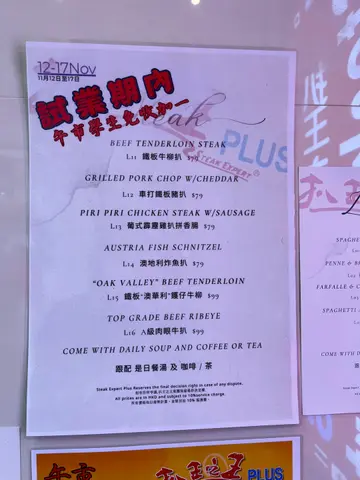 12-17Nov
11月12日至17日
試業期內
午市學生免收加一
Steak
PLUS
STEAK EXPERT
BEEF TENDERLOIN STEAK
L11 鐵板牛柳扒 $79
GRILLED PORK CHOP W/CHEDDAK
L12 車打鐵板豬扒 $79
PIRI PIRI CHICKEN STEAK W/SAUSAGE
L13 葡式霹靂雞扒拼香腸 $79
AUSTRIA FISH SCHNITZEL
L14 澳地利炸魚扒 $79
"OAK VALLEY" BEEF TENDERLOIN
L15 鐵板"澳華利"穫仔牛柳 $99
TOP GRADE BEEF RIBEYE
L16 A級肉眼牛扒 $99
COME WITH DAILY SOUP AND COFFEE OR TEA
跟配 是日餐湯 及 咖啡 / 茶
Steak Expert Plus Reserves the final decision rights in case of any dispute.
All prices are in HKD and subject to 10%service charge.
SPAGHE
PENNE & B
FARFALLE & C
SPAGHETTI
COME WITH D
午市
PLUS